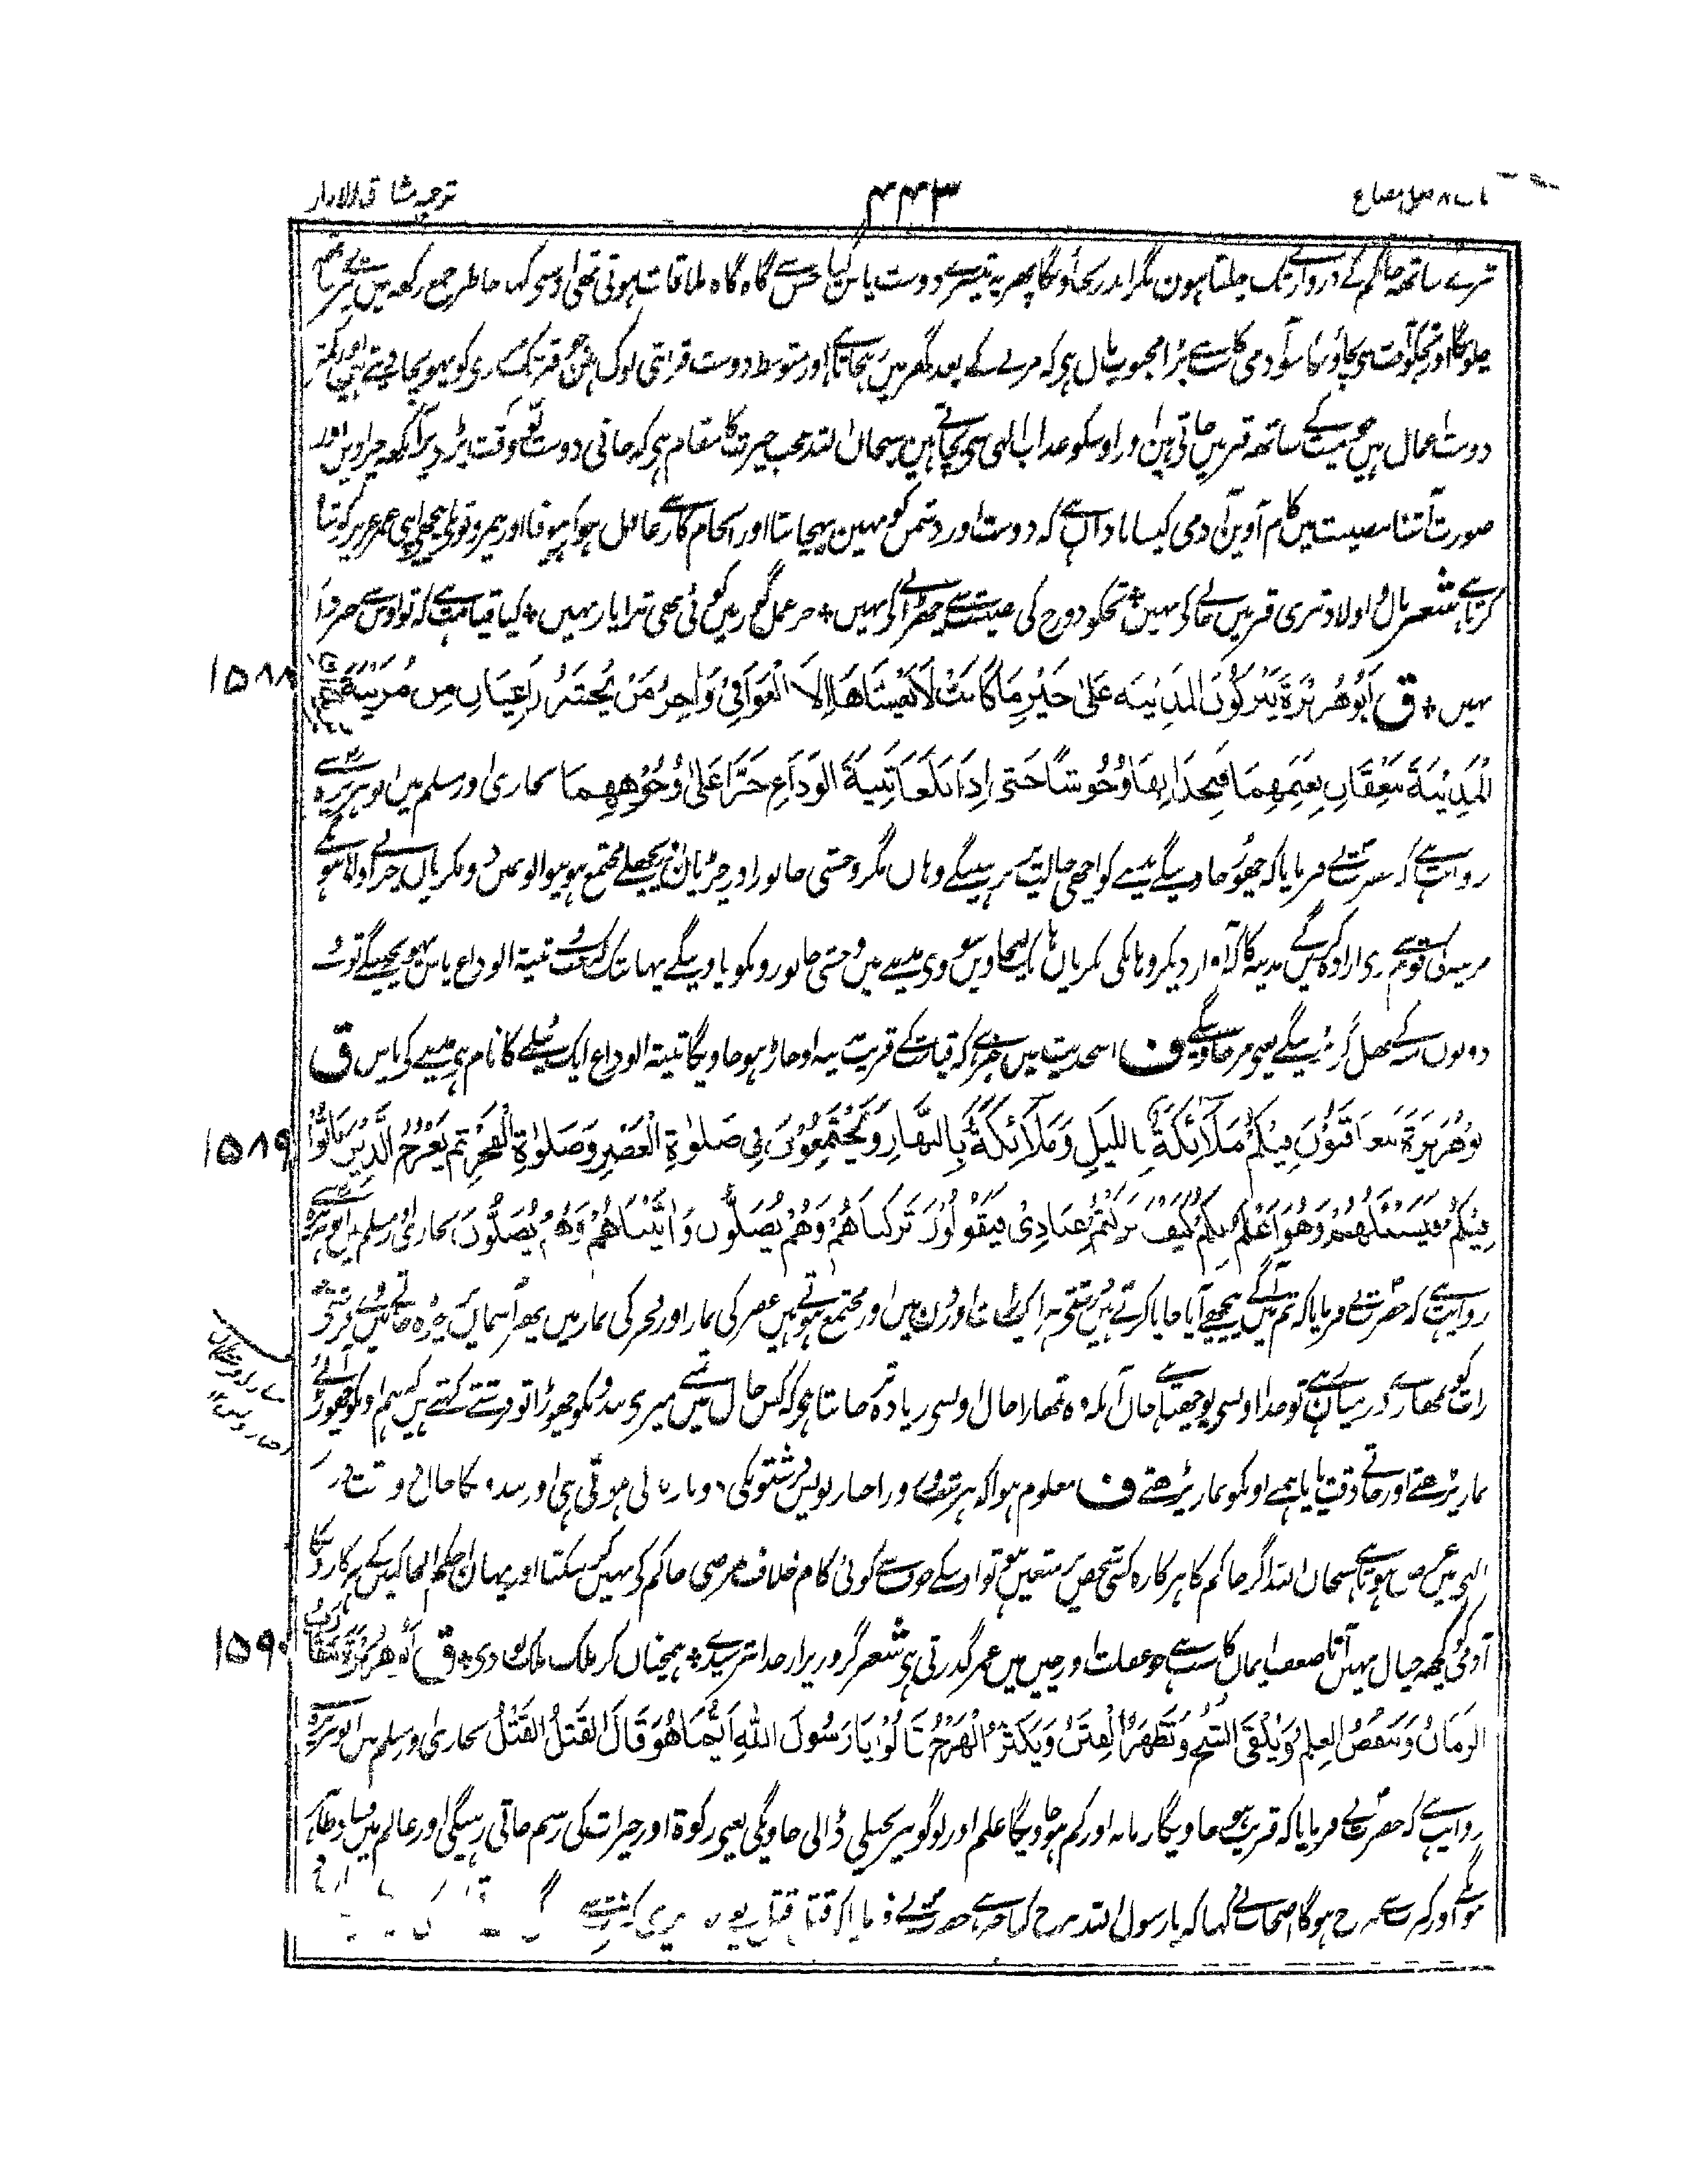 ترجمہ مشارق الانوار
۴۴۳
باب ۸ فصل مضارع
تیرے ساتھ حاکم کے دروازے تک چلتا ہون مگر اندر نجاؤنگا پھر یہ تیسرے دوست پاس گیا جس سے گاہ گاہ ملاقات ہوتی تھی اوسنے کہا خاطر جمع رکھ مین تیرے ساتھ
چلونگا اور تجکو آفت سے بچاؤنگا سو آدمی کا سب سے بڑا محبوب مال ہی کہ مرنے کے بعد گھر مین رہجاتا ہے اور متوسط دوست قرابتی لوگ ہین جو قبر تک مردیکو پہونچا دیتے ہین اور کمتر
دوست اعمال ہین جو میت کے ساتھ قبر مین جاتے ہین اور اوسکو عذاب الٰہی سے بچاتے ہین سبحان اللہ عجب حیرت کا مقام ہی کہ جانی دوست تو وقت پڑے پر آنکھ چراوین اور
صورت آشنا مصیبت مین کام آوین آدمی کیسا نادان ہے کہ دوست اور دشمن کو نہین پہچانتا اور انجام کار سے غافل ہو کر بیوفا اور بیمروتون کے پیچھے اپنی عمر عزیز کو تباہ
کرتا ہے شعر مال و اولاد تری قبر مین جانے کو نہین ٭ تجکو دوزخ کی مصیبت سے چھڑانے کو نہین ٭ جز عمل گور مین کوئی بھی ترا یار نہین ٭ کیا قیامت ہے کہ تو اوس سے خبردار
نہین ٭ ق اَبُوْ هُرَيْرَةَ يَتْرُكُوْنَ الْمَدِيْنَةَ عَلٰى خَيْرِ مَا كَانَتْ لَا يَغْشَاهَا اِلَّا الْعَوَافِيْ وَاٰخِرُ مَنْ يُحْشَرُ رَاعِيَانِ مِنْ مُزَيْنَةَ
۱۵۸۸
الْمَدِيْنَةَ يَنْعِقَانِ بِغَنَمِهِمَا فَيَجِدَانِهَا وُحُوْشًا حَتّٰى اِذَا بَلَغَا ثَنِيَّةَ الْوَدَاعِ خَرَّا عَلٰى وُجُوْهِهِمَا بخاری اور مسلم مین ابو ہریرہ سے
روایت ہے کہ حضرت نے فرمایا کہ چھوڑ جاوینگے مدینے کو اچھی حالت پر نہ رہینگے وہان مگر وحشی جانور اور چڑیان اور پچھلے مجتمع ہونیوالون مین دو بکریان چرانے والے ہونگے
مزینہ کی قوم سے ارادہ کرینگے مدینہ کا کہ آواز دیکر وہانکی بکریان ہانک لیجاوین سو وے مدینے مین وحشی جانورونکو پاوینگے یہانتک کہ جب ثنیۃ الوداع پاس پہونچینگے تو
دونون منہ کے بھل گر پڑینگے یعنی مر جاوینگے ف اس حدیث مین خبر ہے کہ قیامت کے قریب مدینہ اوجاڑ ہو جاویگا ثنیۃ الوداع ایک ٹیلے کا نام ہی مدینے کے پاس ق
اَبُوْ هُرَيْرَةَ يَتَعَاقَبُوْنَ فِيْكُمْ مَلَآئِكَةٌ بِاللَّيْلِ وَمَلَآئِكَةٌ بِالنَّهَارِ وَيَجْتَمِعُوْنَ فِيْ صَلٰوةِ الْعَصْرِ وَصَلٰوةِ الْفَجْرِ ثُمَّ يَعْرُجُ الَّذِيْنَ بَاتُوْا
۱۵۸۹
فِيْكُمْ فَيَسْئَلُهُمْ وَهُوَ اَعْلَمُ بِكُمْ كَيْفَ تَرَكْتُمْ عِبَادِيْ فَيَقُوْلُوْنَ تَرَكْنَاهُمْ وَهُمْ يُصَلُّوْنَ وَاَتَيْنَاهُمْ وَهُمْ يُصَلُّوْنَ بخاری اور مسلم مین ابو ہریرہ سے
روایت ہے کہ حضرت نے فرمایا کہ تم مین آگے پیچھے آیا جایا کرتے ہین فرشتے ہر ایک رات اور دن مین اور مجتمع ہوتے ہین عصر کی نماز اور فجر کی نماز مین پھر آسمان پر چڑھ جاتے ہین وے فرشتے جو
رات کو تمھارے درمیان رہے تو خدا اونسے پوچھتا ہے حال آنکہ وہ تمھارا حال اونسے زیادہ تر جانتا ہی کہ کس حال مین تمنے میری بندونکو چھوڑا تو فرشتے کہتے ہین کہ ہمنے اونکو چھوڑا
نماز پڑھتے اور جاتے وقت پایا ہمنے اونکو نماز پڑھتے ف معلوم ہوا کہ ہر شب و روز اخبار نویس فرشتونکی دو بار بدلی ہوتی ہی اور بندہ کا حال
الٰہی مین عرض ہوتا ہے سبحان اللہ اگر حاکم کا ہرکارہ کسی شخص پر متعین ہو تو اوسکے خوف سے کوئی کام خلاف مرضی حاکم کے نہین کر سکتا اور یہان احکم الحاکمین کے ہرکارونکا
آدمی کو کچھ خیال نہین آتا ضعف ایمان کا سبب ہے جو غفلت اور چین مین عمر گذرتی ہی شعر گر وزیر از خدا بترسیدے ٭ ہمچنان کز ملک ملک بودی ٭ ق اَبُوْ هُرَيْرَةَ يَتَقَارَبُ
۱۵۹۰
الزَّمَانُ وَيَنْقُصُ الْعِلْمُ وَيُلْقَى الشُّحُّ وَتَظْهَرُ الْفِتَنُ وَيَكْثُرُ الْهَرْجُ قَالُوْا يَا رَسُوْلَ اللّٰهِ اَيُّمَا هُوَ قَالَ الْقَتْلُ الْقَتْلُ بخاری و مسلم مین ابو ہریرہ سے
روایت ہے کہ حضرت نے فرمایا کہ قریب ہو جاویگا زمانہ اور کم ہو جاویگا علم اور لوگونپر بخیلی ڈالی جاویگی یعنی زکوۃ اور خیرات کی رسم جاتی رہیگی اور عالم مین فساد ظاہر
ہونگے اور کثرت سے ہرج ہوگا اصحاب نے کہا کہ یا رسول اللہ ہرج کیا ہے حضرت نے فرمایا کہ قتل قتل